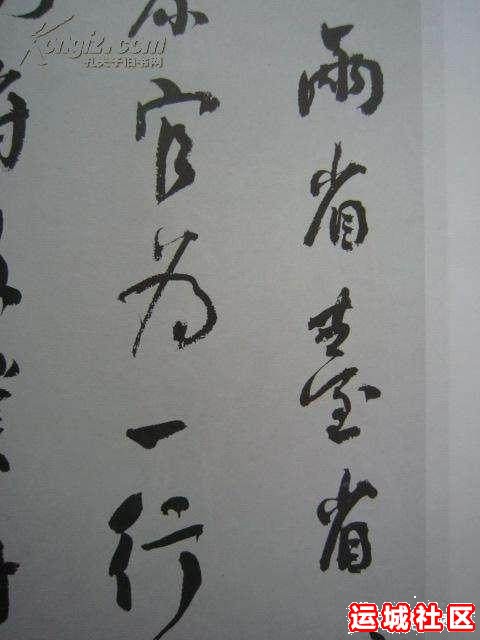 兩省臺省
官為一行
Kongfz.com
孔夫子旧书网
运城社区